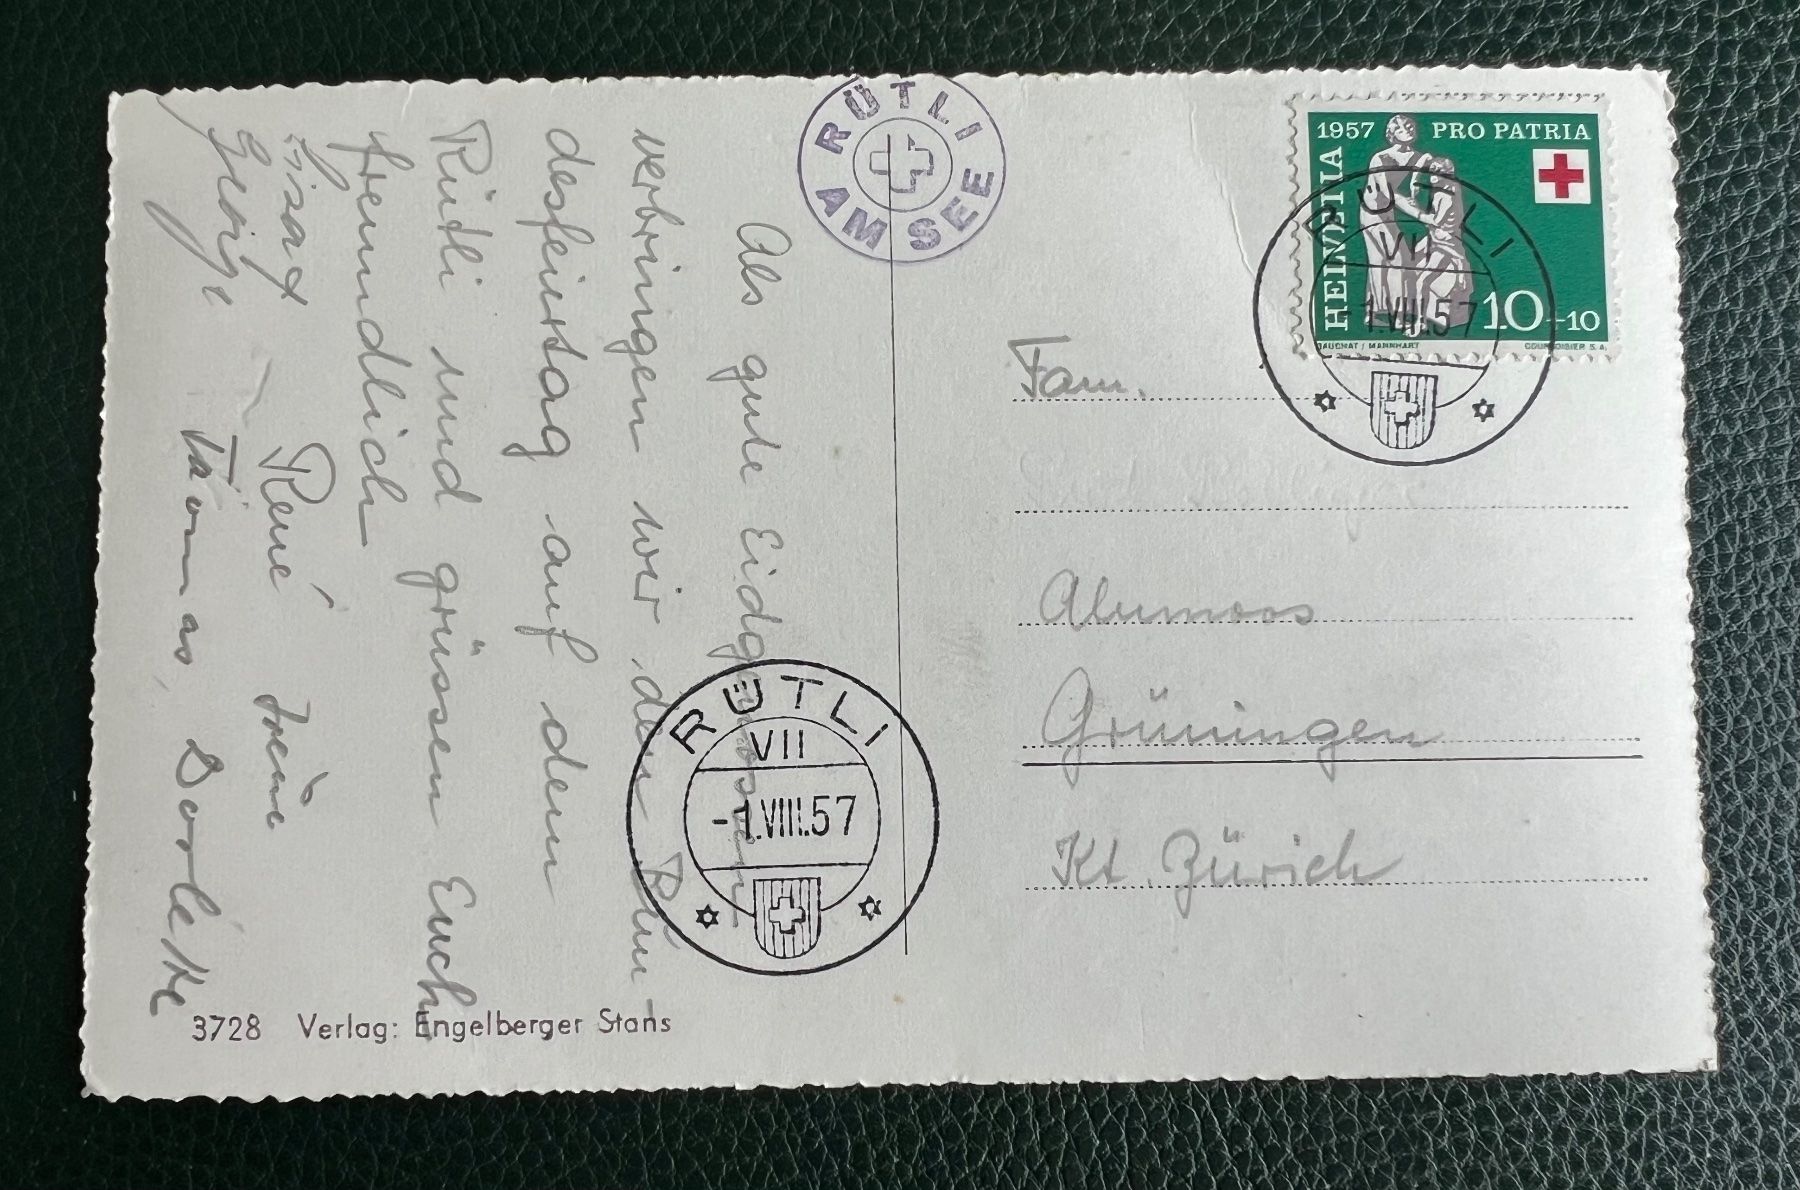 Als gute Eidgenossen
verbringen wir den Bun-
desfeiertag auf dem
Rütli und grüssen Euch
freundlich
René Irène
Thomas, Dorlete
RÜTLI
AM SEE
1957 PRO PATRIA
HELVETIA
10+10
COURVOISIER S.A.
RÜTLI
VII
-1.VIII.57
Fam.
Grüningen
Kt. Zürich
RÜTLI
VII
-1.VIII.57
3728 Verlag: Engelberger Stans